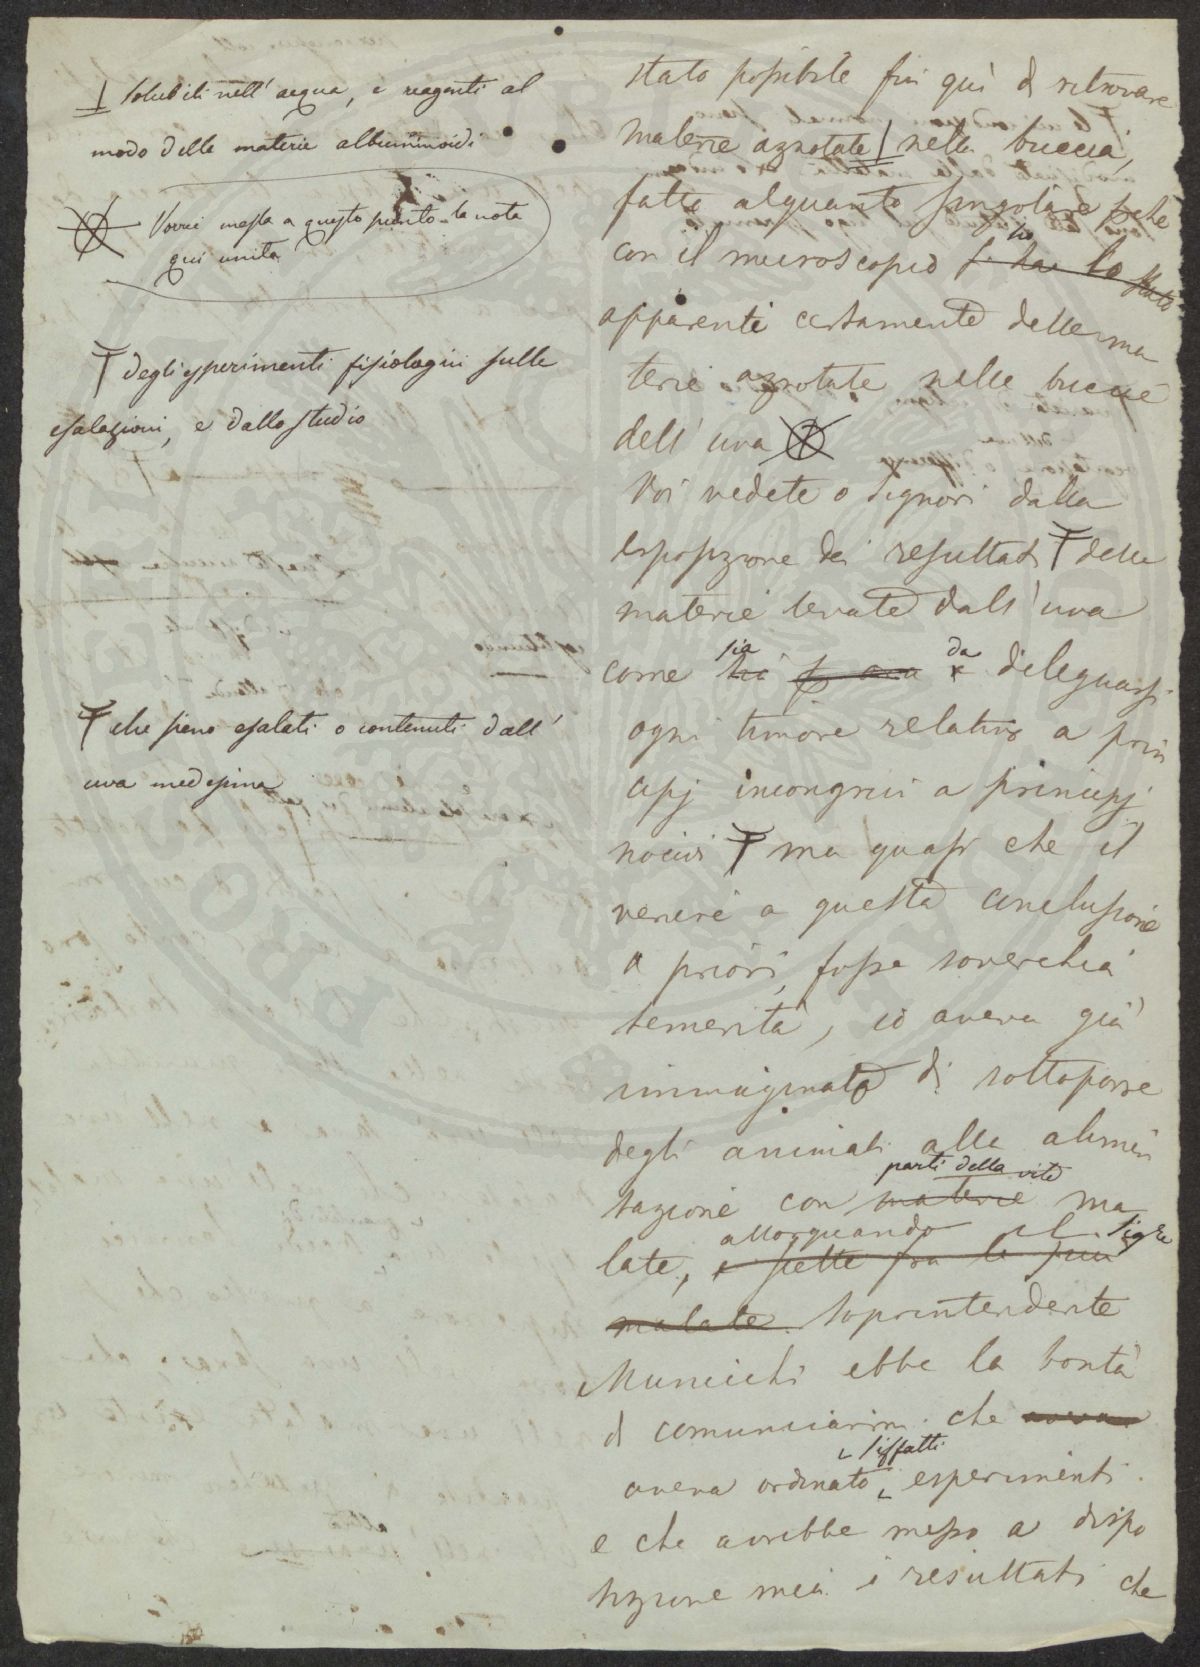 solubili nell' acqua, e reagenti al
modo delle materie albuminoidi
Vorrei messa a questo punto la nota
qui unita
degli esperimenti fisiologici sulle
esalazioni, e dallo studio
che sieno esalati o contenuti dall'
uva medesima
stato possibile fin quì di ritrovare
materie azzotate nella buccia,
fatto alquanto singolare
con il microscopio
apparenti certamente delle ma
terie azzotate nelle buccie
dell' uva
Voi vedete o Signori dalla
esposizione dei resultati delle
materie levate dall' uva
sia da
come dileguarsi
ogni timore relativo a prin
cipj incongrui a principj
nocivi ma quasi che il
venire a questa conclusione
a priori, fosse soverchia
temerità, io aveva già
immaginato di sottoporre
degli animali alla alimen
parti della vite
tazione con materie ma
allorquando il Sigre
late, e scelte fra le più
malate. Soprintendente
Municchi ebbe la bontà
di comunicarmi che
siffatti
aveva ordinato esperimenti
e che avrebbe messo a dispo
sizione mia i resultati che